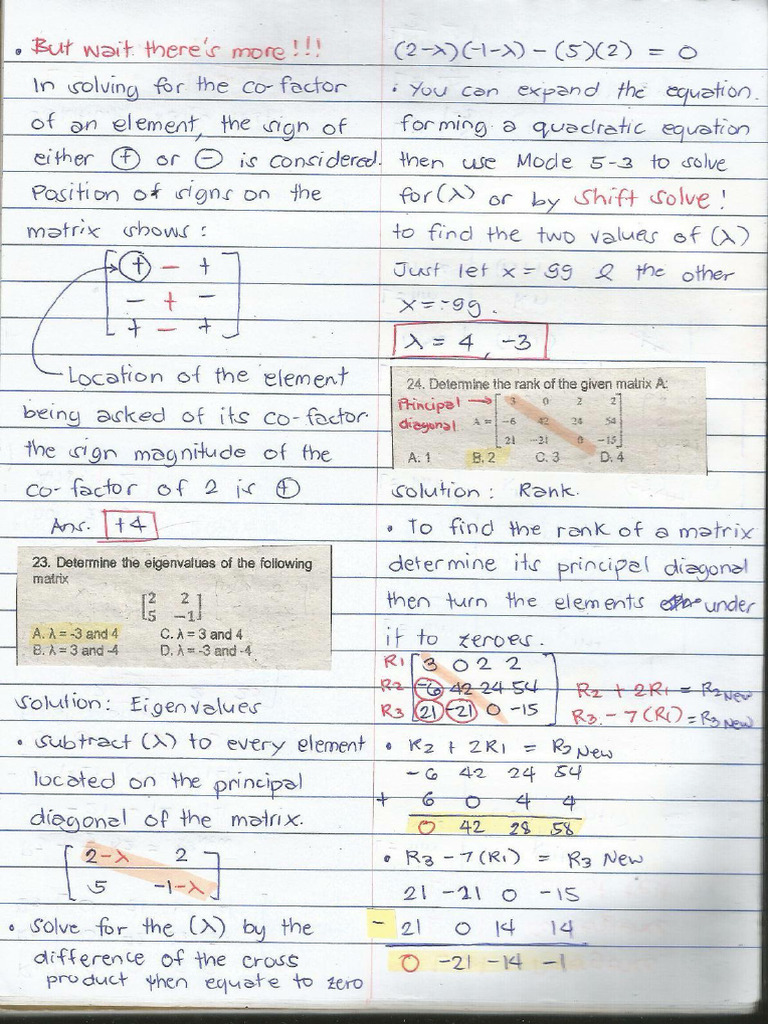 • But wait there's more!!!
In solving for the co-factor
of an element, the sign of
either ⊕ or ⊖ is considered.
Position of signs on the
matrix shows:
+ − +
− + −
+ − +
Location of the element
being asked of its co-factor.
the sign magnitude of the
co-factor of 2 is ⊕
Ans. +4
23. Determine the eigenvalues of the following
matrix
2 2
5 −1
A. λ = -3 and 4 C. λ = 3 and 4
B. λ = 3 and -4 D. λ = -3 and -4
solution: Eigenvalues
• subtract (λ) to every element
located on the principal
diagonal of the matrix.
2-λ 2
5 -1-λ
• solve for the (λ) by the
difference of the cross
product then equate to zero
(2-λ)(-1-λ) - (5)(2) = 0
• You can expand the equation.
forming a quadratic equation
then use Mode 5-3 to solve
for (λ) or by shift solve!
to find the two values of (λ)
Just let x = 99 & the other
x = -99.
λ = 4, -3
24. Determine the rank of the given matrix A:
Principal → 3 0 2 2
diagonal A = -6 42 24 54
21 -21 0 -15
A. 1 B. 2 C. 3 D. 4
solution: Rank.
• To find the rank of a matrix
determine its principal diagonal
then turn the elements under
it to zeroes.
R1 3 0 2 2
R2 -6 42 24 54 R2 + 2R1 = R2 New
R3 21 -21 0 -15 R3 - 7(R1) = R3 New
• R2 + 2R1 = R2 New
-6 42 24 54
+ 6 0 4 4
0 42 28 58
• R3 - 7(R1) = R3 New
21 -21 0 -15
- 21 0 14 14
0 -21 -14 -1